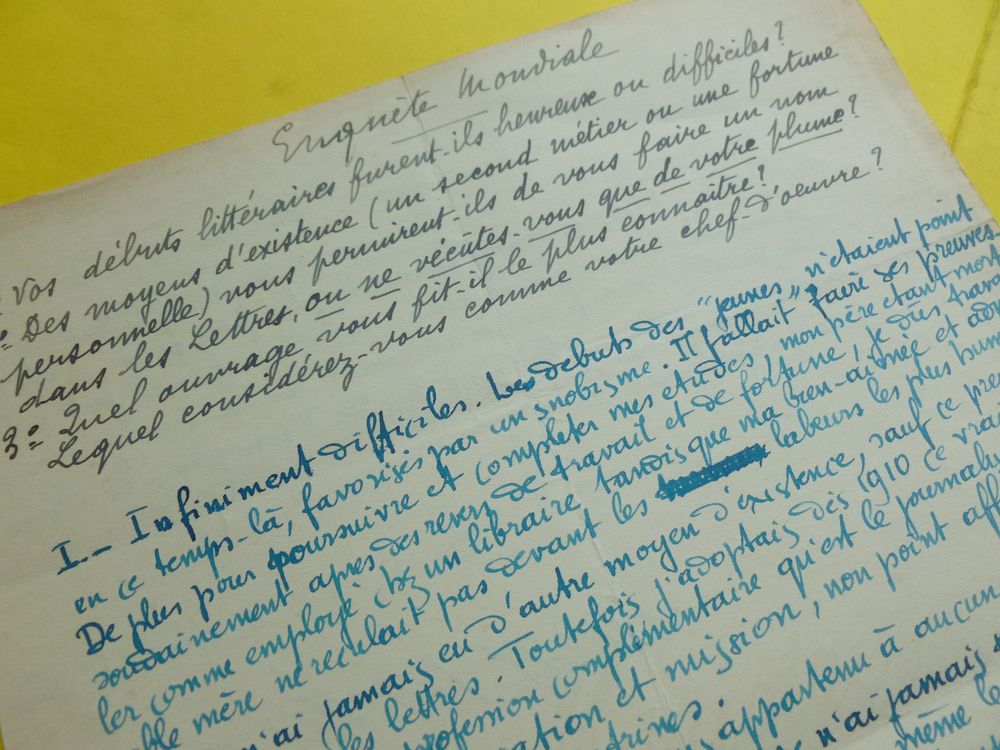 Enquête Mondiale
Vos débuts littéraires furent-ils heureux ou difficiles?
Des moyens d'existence (un second métier ou une fortune
personnelle) vous permirent-ils de vous faire un nom
dans les Lettres, ou ne vécûtes-vous que de votre plume?
3º Quel ouvrage vous fit-il le plus connaître?
Lequel considérez-vous comme votre chef-d'oeuvre?
I.- Infiniment difficiles. Les débuts des "jeunes" n'étaient point
en ce temps-là, favorisés par un snobisme. Il fallait faire des preuves.
De plus pour poursuivre et compléter mes études, mon père étant mort
soudainement après des revers de travail et de fortune, je dus travail
ler comme employé chez un libraire tandis que ma bien-aimée et ado
able mère ne reculait pas devant les labeurs les plus hum
n'ai jamais eu d'autre moyen d'existence, sauf ce pre
les lettres. Toutefois j'adoptais dès 1910 ce vrai
rofession complémentaire qu'est le journalis
ation et mission, non point aff
trines.
appartenu à aucun
n'ai jamais
même le